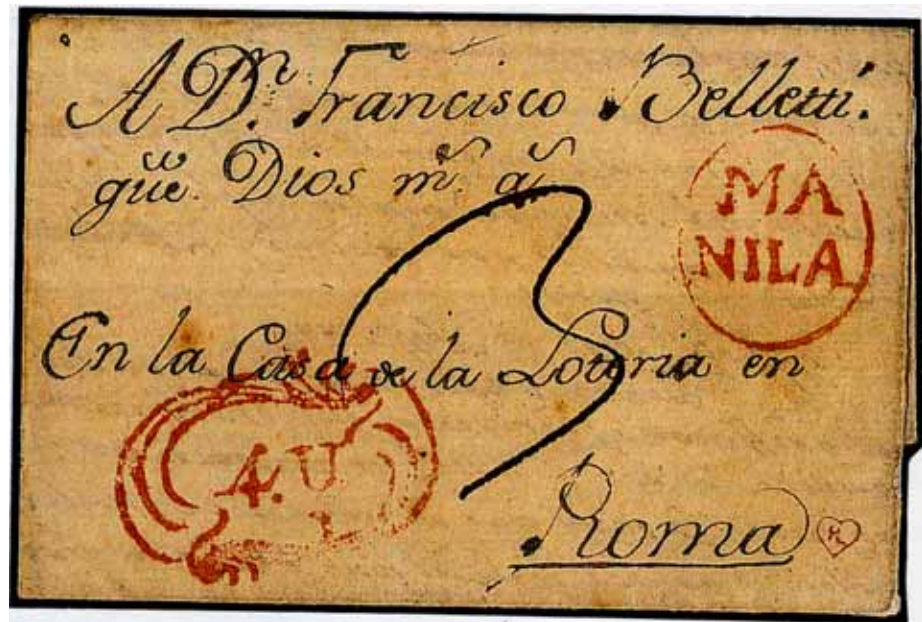 A Dn. Francisco Belletti.
gũe. Dios ms. as.
MA
NILA
En la Casa de la Loteria en
4. U
Roma